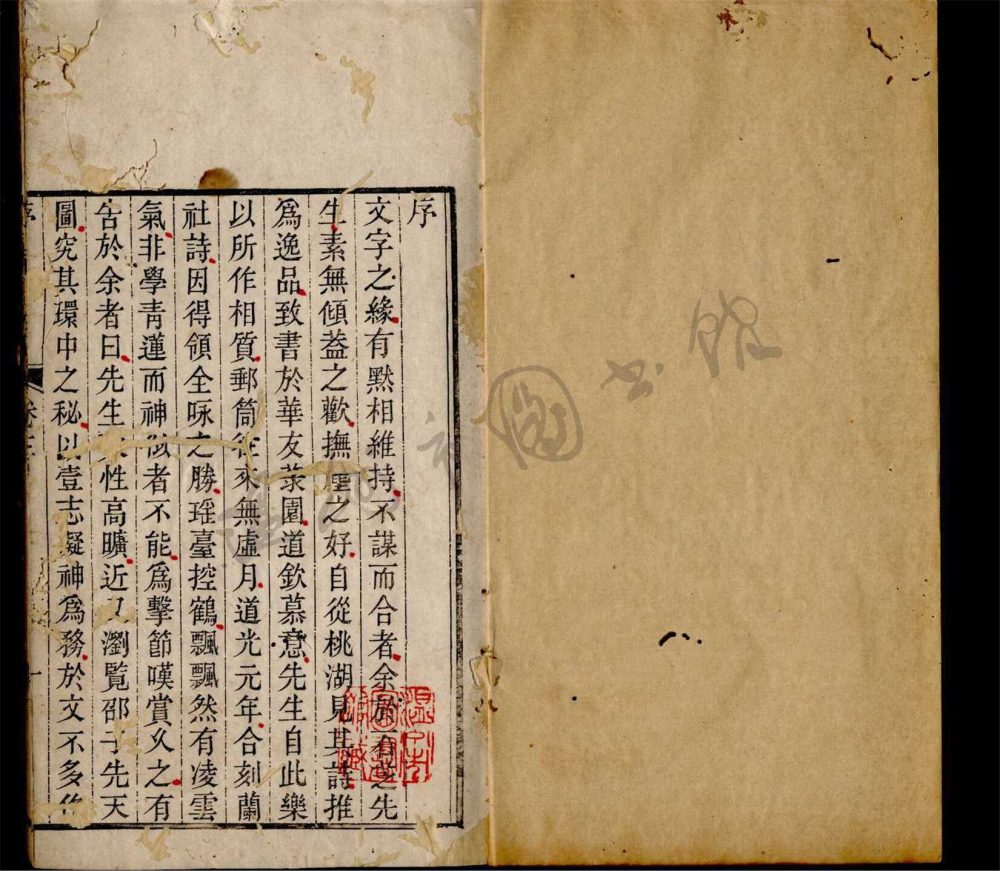 序
文字之緣有默相維持不謀而合者余於有芝先
生素無傾葢之歡撫塵之好自從桃湖見其詩推
爲逸品致書於華友菉園道欽慕意先生自此樂
以所作相質郵筒往來無虛月道光元年合刻蘭
社詩因得領全咏之勝瑶臺控鶴飄飄然有凌雲
氣非學青蓮而神似者不能爲擊節嘆賞久之有
告於余者曰先生性高曠近又瀏覧邵子先天
圖究其環中之秘以壹志凝神爲務於文不多作
圖書館